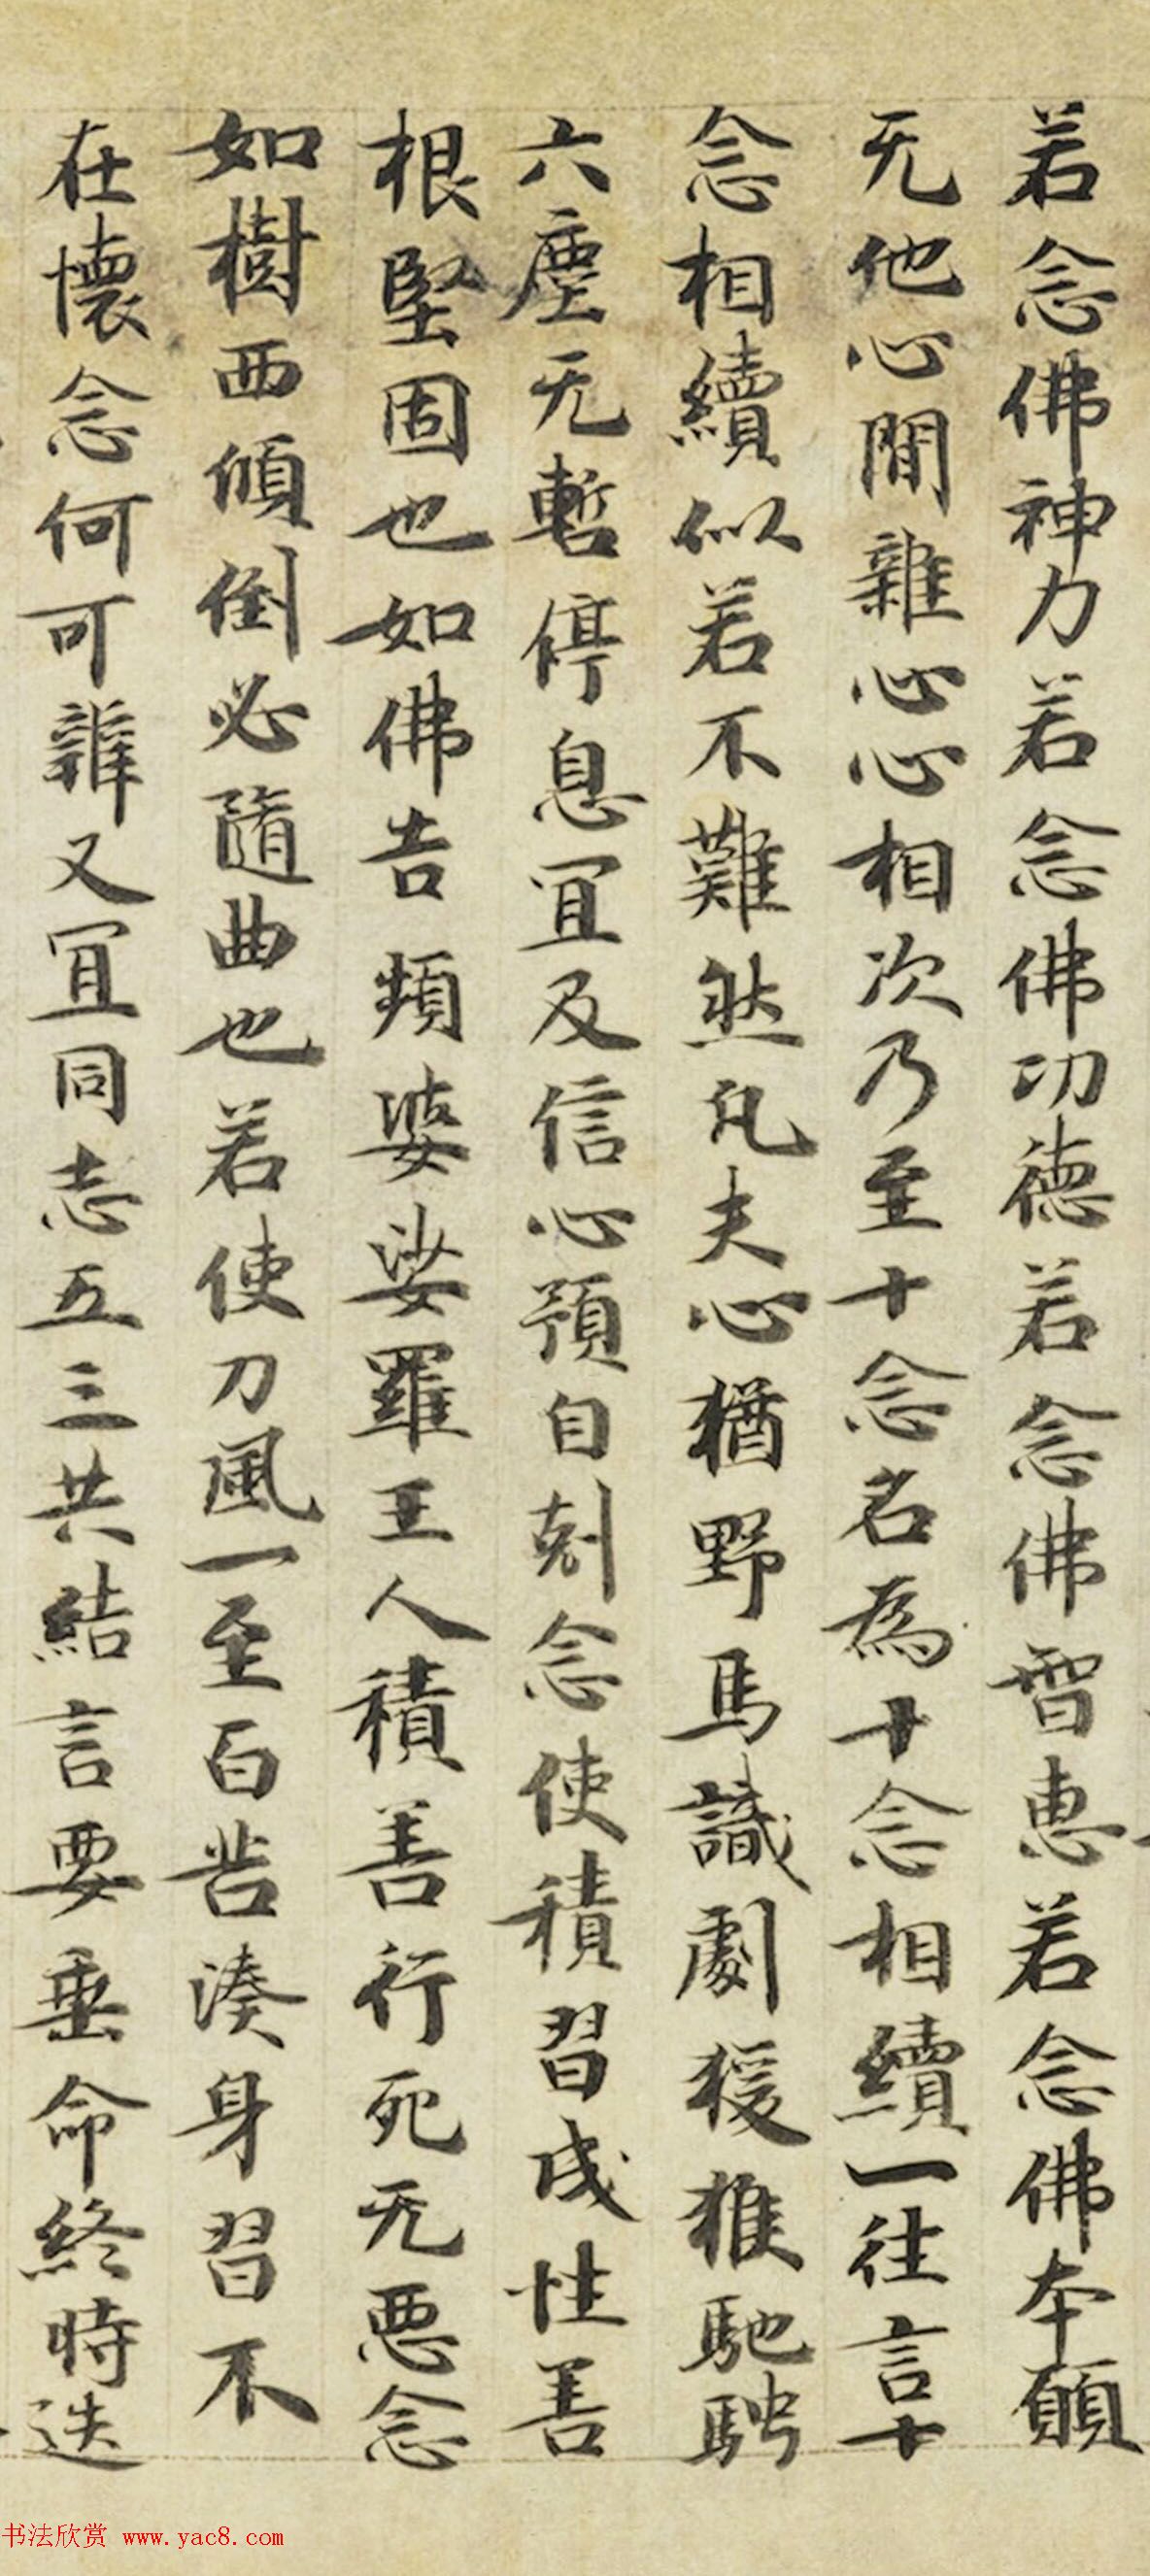 若念佛神力若念佛功德若念佛智恵若念佛本願
无他心間雜心心相次乃至十念名為十念相續一往言十
念相續似若不難然凡夫心猶野馬識劇猨猴馳騁
六塵无暫停息宜及信心預自剋念使積習成性善
根堅固也如佛告頻婆娑羅王人積善行死无惡念
如樹西傾倒必隨曲也若使刀風一至百苦湊身習不
在懷念何可辨又宜同志五三共結言要垂命終時迭
书法欣赏 www.yac8.com